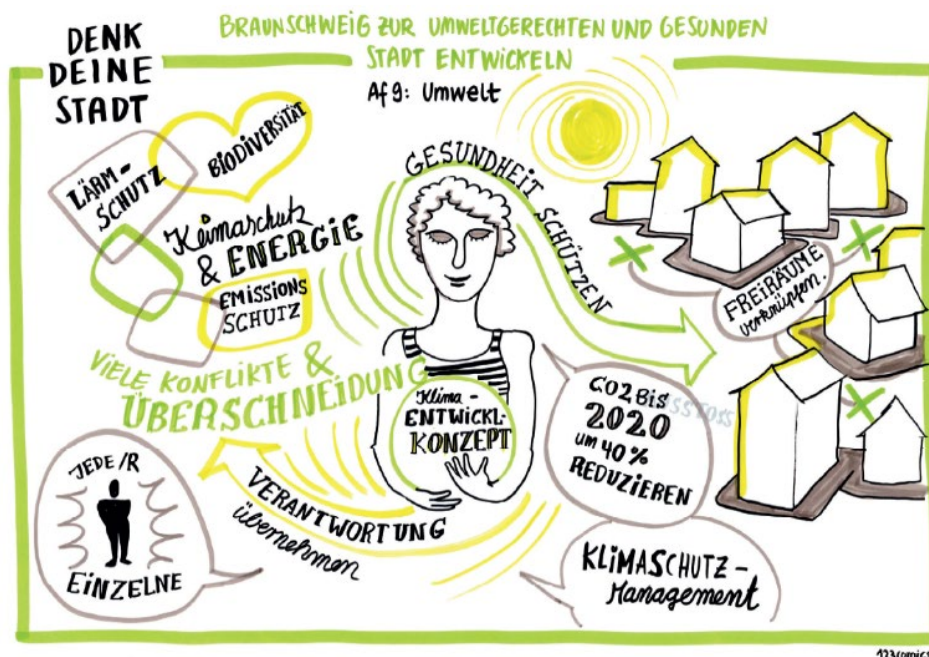 DENK
DEINE
STADT
BRAUNSCHWEIG ZUR UMWELTGERECHTEN UND GESUNDEN
STADT ENTWICKELN
Af9: Umwelt
LÄRM-
SCHUTZ
BIODIVERSITÄT
Klimaschutz
& ENERGIE
EMISSIONS
SCHUTZ
VIELE KONFLIKTE &
ÜBERSCHNEIDUNG
GESUNDHEIT SCHÜTZEN
FREIRÄUME
verknüpfen.
Klima-
ENTWICKL.
KONZEPT
CO2 BIS
2020
um 40%
REDUZIEREN
JEDE/R
EINZELNE
VERANTWORTUNG
übernehmen
KLIMASCHUTZ-
Management
123comics